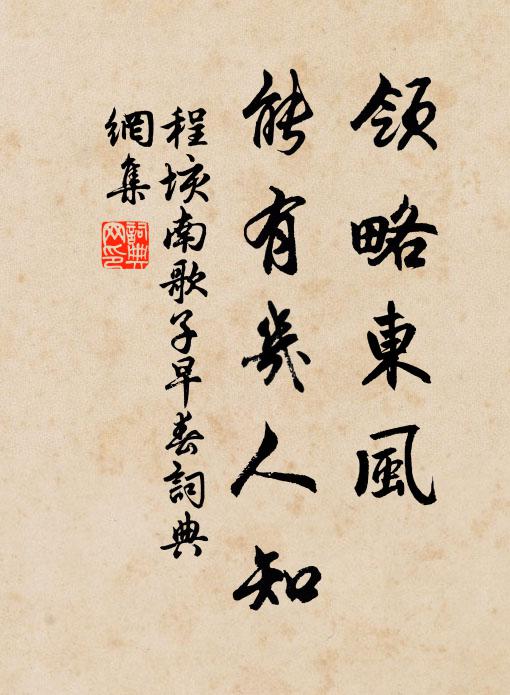 領略東風
能有幾人知
程垓南歌子早春詞典
網集
詞典
网印